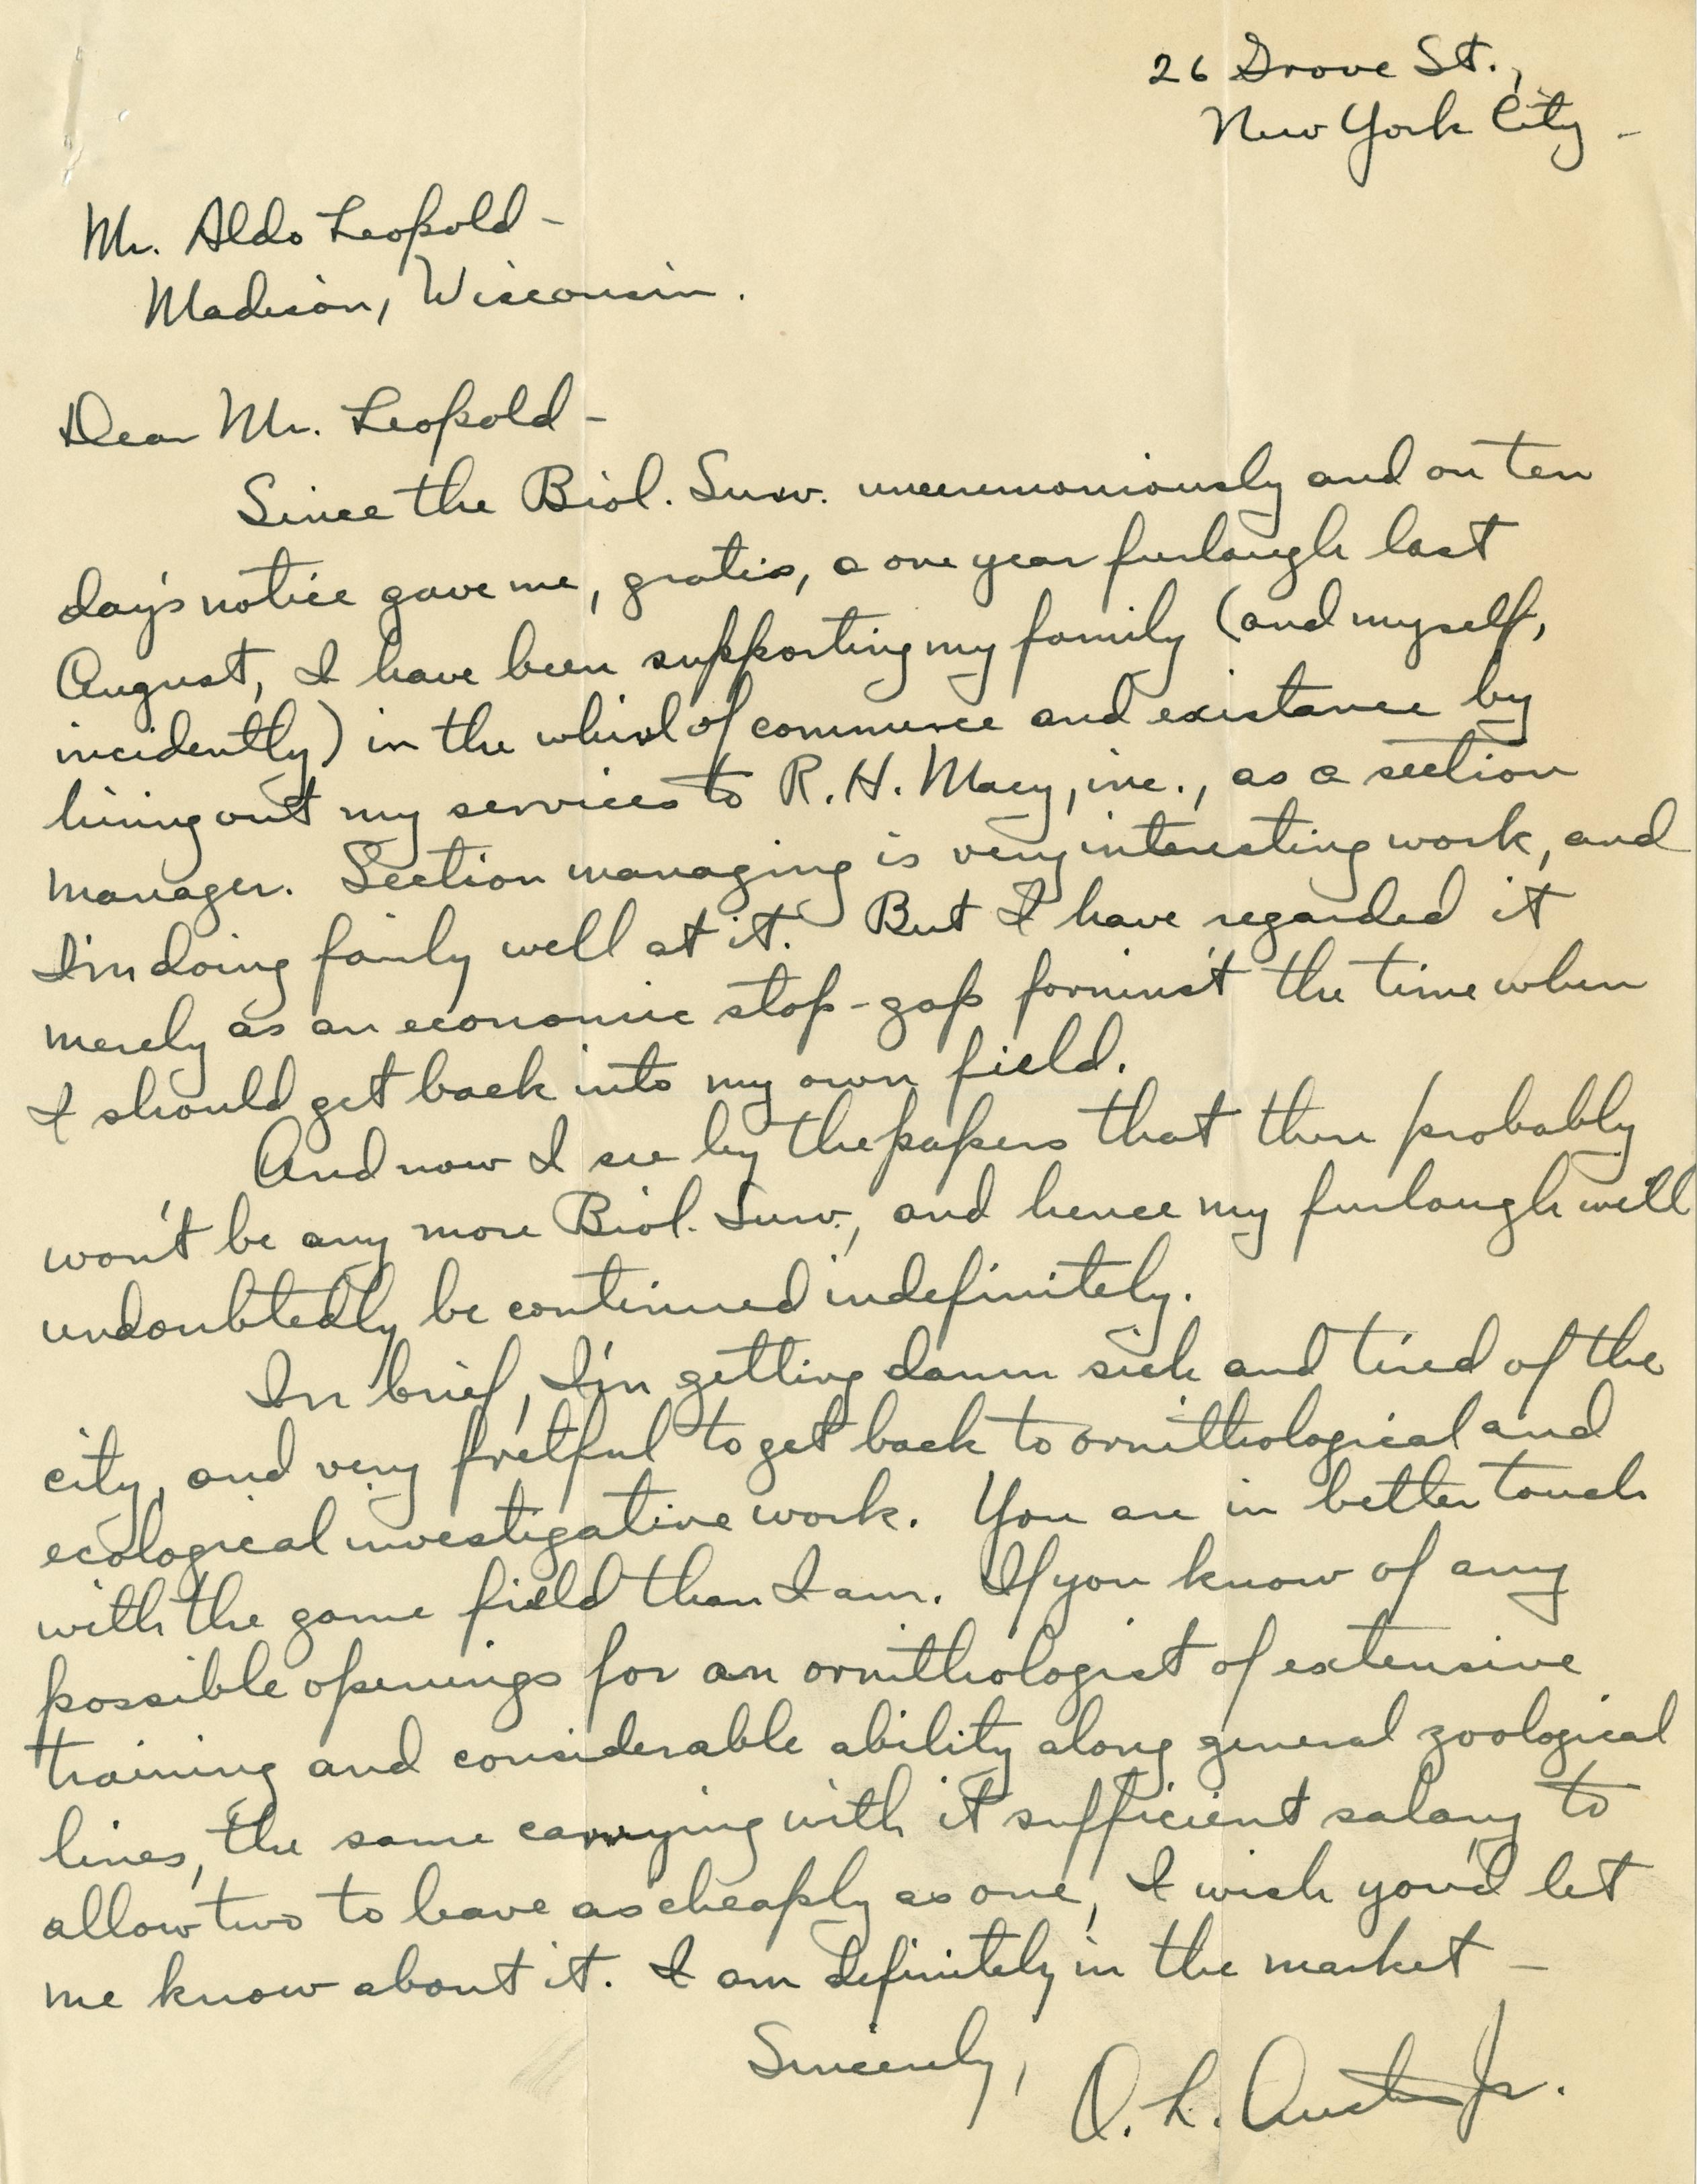 26 Grove St.,
New York City -
Mr. Aldo Leopold -
Madison, Wisconsin.
Dear Mr. Leopold -
Since the Biol. Surv. unceremoniously and on ten
day's notice gave me, gratis, a one year furlough last
August, I have been supporting my family (and myself,
incidently) in the whirl of commerce and existance by
hiring out my services to R. H. Macy, inc., as a section
manager. Section managing is very interesting work, and
I'm doing fairly well at it. But I have regarded it
merely as an economic stop-gap forninst the time when
I should get back into my own field.
And now I see by the papers that there probably
won't be any more Biol. Surv., and hence my furlough will
undoubtedly be continued indefinitely.
In brief, I'm getting damn sick and tired of the
city, and very fretful to get back to ornithological and
ecological investigative work. You are in better touch
with the game field than I am. If you know of any
possible openings for an ornithologist of extensive
training and considerable ability along general zoological
lines, the same carrying with it sufficient salary to
allow two to leave as cheaply as one, I wish you'd let
me know about it. I am definitely in the market -
Sincerely,
O. L. Austin Jr.